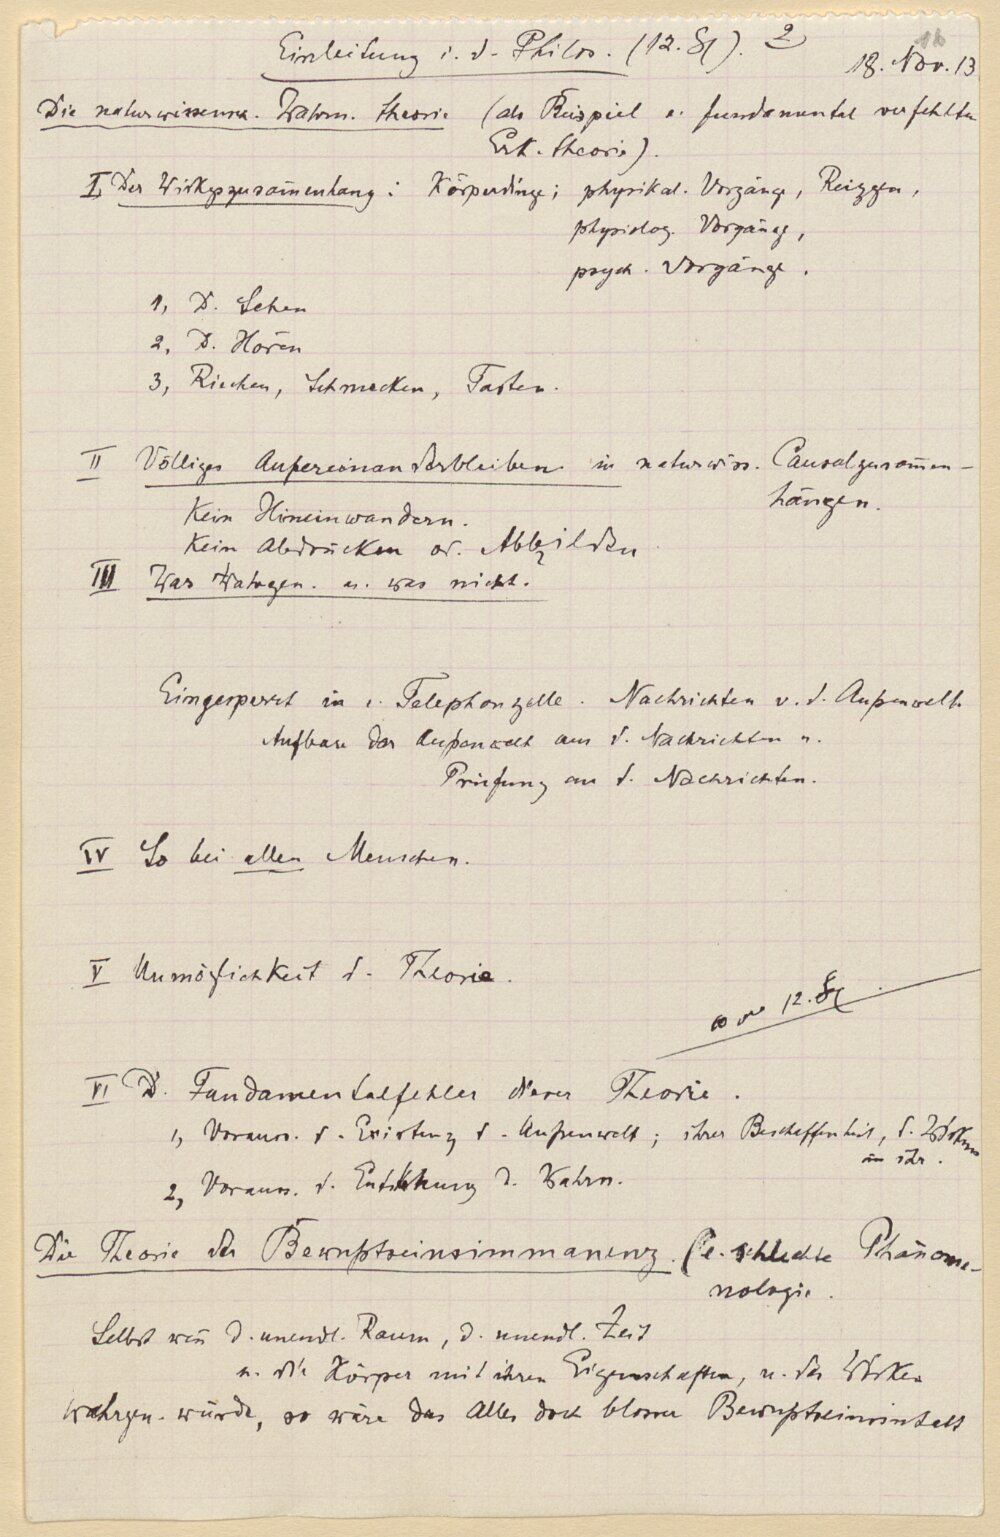 Einleitung i. d. Philos. (12. St). 2
16
18. Nov. 13
Die naturwissensch. Wahrn. theorie (als Beispiel e. fundamental verfehlten
Erk. theorie).
I, Der Wirkgszusam̄enhang: Körperdinge; physikal. Vorgänge, Reizgen,
physiolog. Vorgänge,
psych. Vorgänge.
1, D. Sehen
2, D. Hören
3, Riechen, Schmecken, Tasten.
II Völliges Außereinanderbleiben in naturwiss. Causalzusam̄en-
hängen.
Kein Hineinwandern.
Kein Abdrücken od. Abbilden
III Was Wahrgen. u. was nicht.
Eingesperrt in e. Telephonzelle. Nachrichten v. d. Außenwelt.
Aufbau der Außenwelt aus d. Nachrichten u.
Prüfung an d. Nachrichten.
IV So bei allen Menschen.
V Unmöglichkeit d. Theorie.
12. St.
VI D. Fundamentalfehler dieser Theorie.
1, Vorauss. d. Existenz d. Außenwelt; ihrer Beschaffenheit, d. Wirkens
in ihr.
2, Vorauss. d. Entstehung d. Wahrn.
Die Theorie der Bewußtseinsimmanenz. (e. schlechte Phänome-
nologie.
Selbst wen̄ d. unendl. Raum, d. unendl. Zeit
u. die Körper mit ihren Eigenschaften, u. das Wirken
wahrgen. würde, so wäre das Alles doch blosser Bewußtseinsinhalt